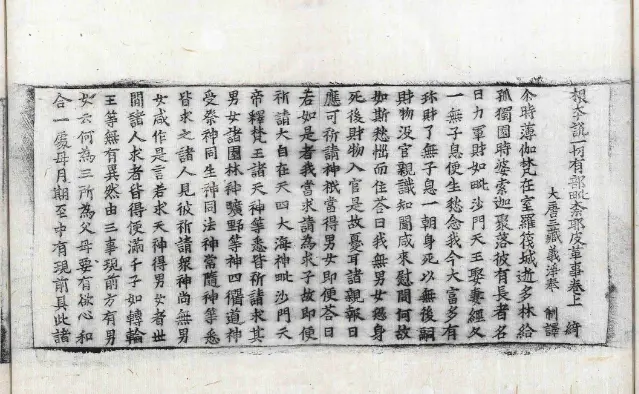 根本說一切有部毗柰耶皮革事卷上 綺
大唐三藏義淨奉 制譯
尒時薄伽梵在室羅筏城逝多林給
孤獨園時婆索迦聚落彼有長者名
日力軍財如毗沙門天王娶妻經久
一無子息便生愁念我今大富多有
珎財了無子息一朝身死以無後嗣
財物没官親識知聞咸來慰問何故
如斯愁惱而住荅曰我無男女恐身
死後財物入官是故憂耳諸親報曰
應可祈請神祇當得男女即便荅曰
若如是者我當求請為求子故即便
祈請大自在天四大海神毗沙門天
帝釋梵王諸天神等悉皆祈請求其
男女諸園林神曠野等神四衢道神
受祭神同生神同法神常隨神等悉
皆求之諸人見彼祈請衆神尚無男
女咸作是言若求天神得男女者世
間諸人求者皆得便滿千子如轉輪
王等無有異然由三事現前方有男
女云何為三所為父母要有欲心和
合一處母月期至中有現前具此諸